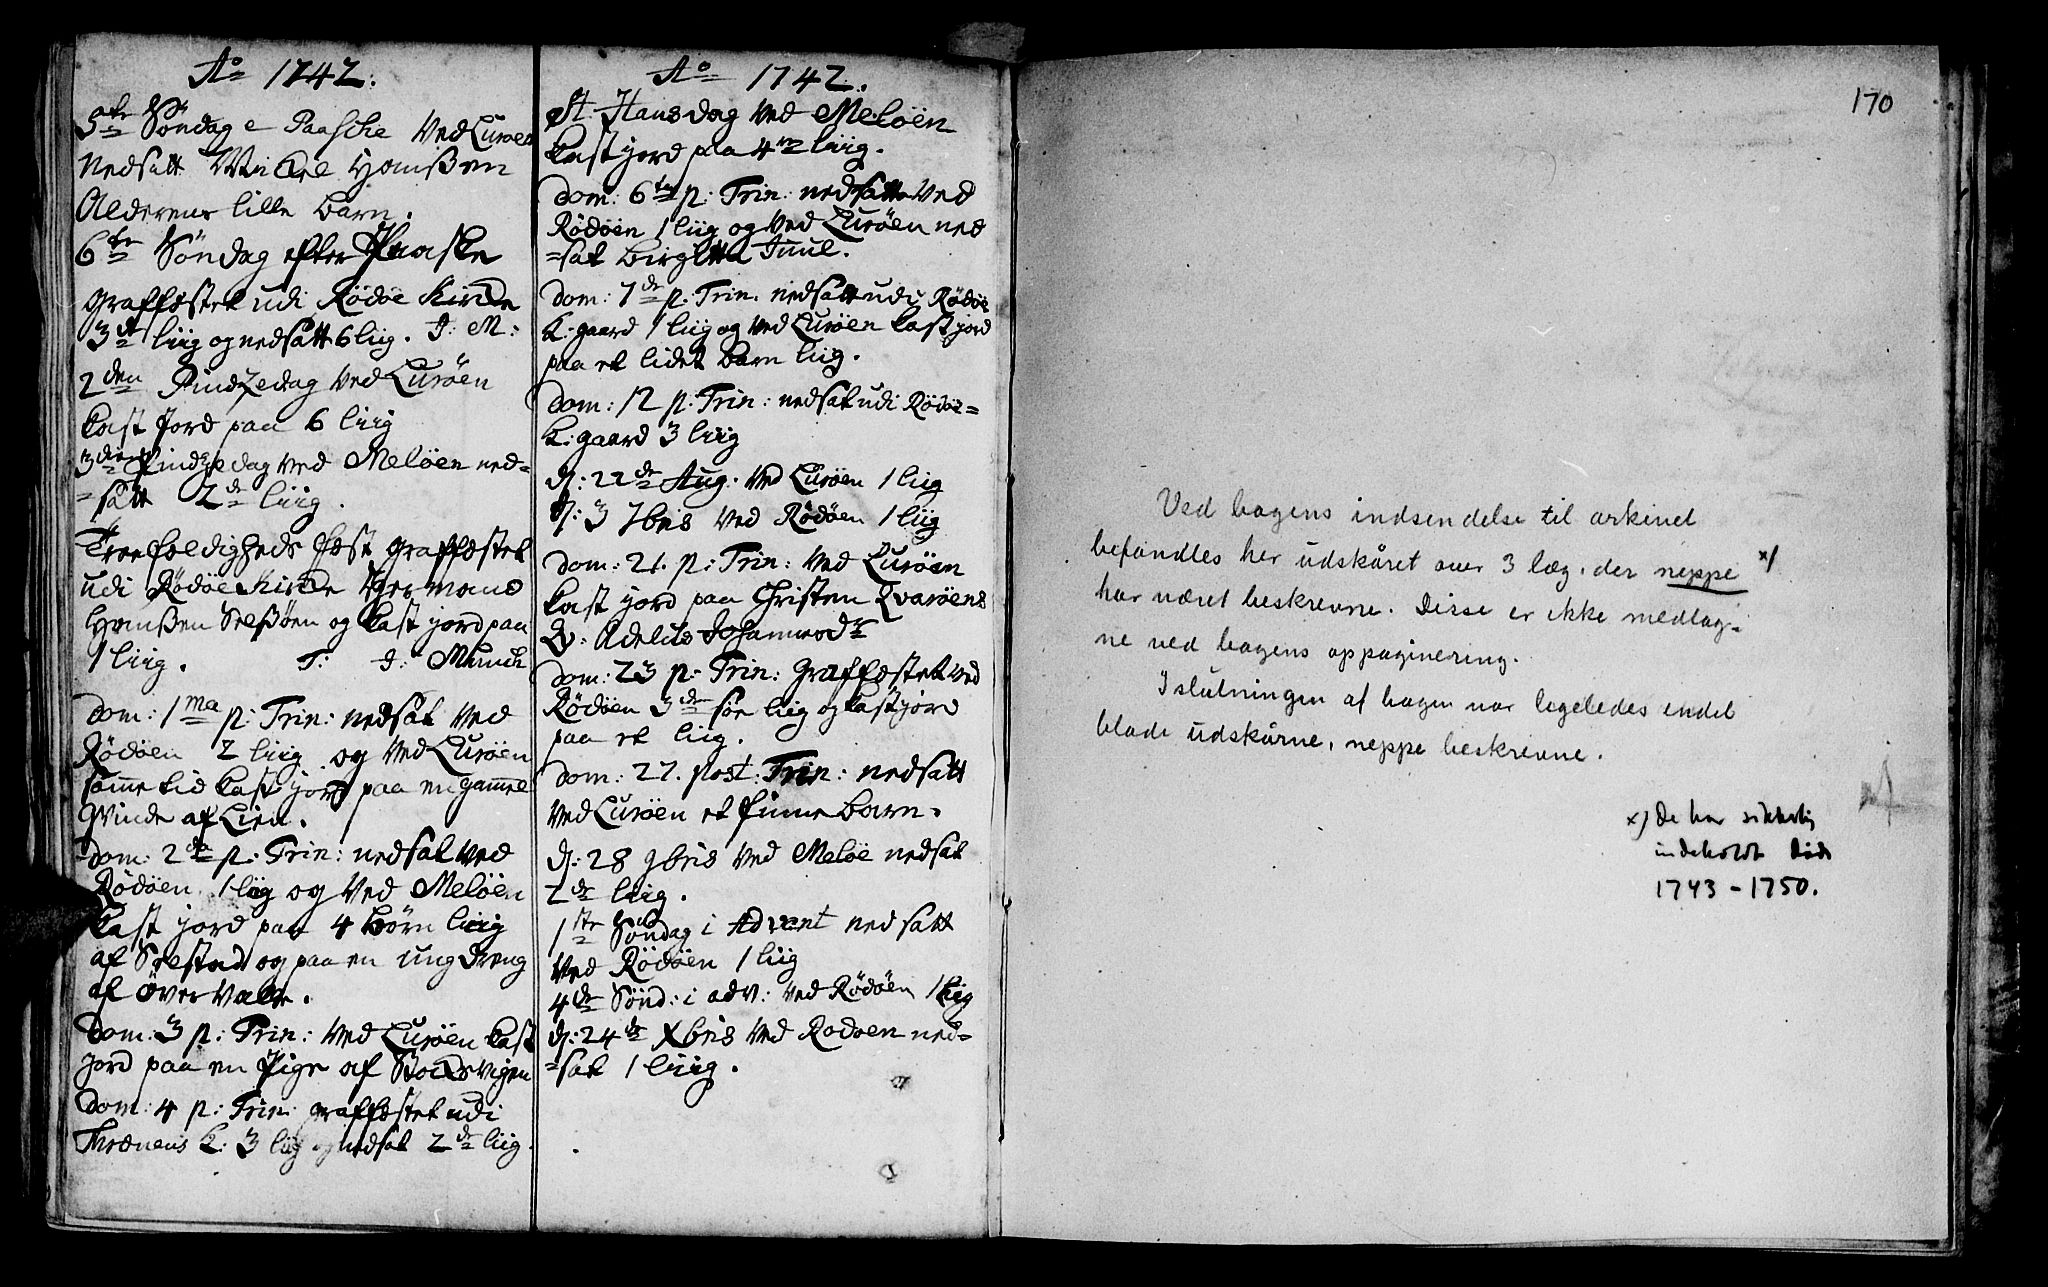 Ao 1742.
5te Søndag e Paasche Ved Lurøen
Nedsatt Michel Hanssen
Alderens lille barn.
6te Søndag efter Paaske
graffæstet udi Rødøe Kirche
3de liig og nedsatt 6 liig. J: M:
2den Pindzedag Ved Lurøen
kast Jord paa 6 liig
3die Pindzedag ved Meløen ned=
=satt 2de liig.
Treefoldigheds fæst graffæstet
udi Rødøe Kirche Hermand
Hanssen Selssøen og kast jord paa
1 liig. T: J: Munch
dom: 1ma p: Trin: nedsat ved
Rødøen 2 liig og Ved Lurøen
samme tid kast jord paa en gammel
Qvinde af Lien.
dom: 2da p: Trin: nedsat ved
Rødøen 1 liig og Ved Meløen
kast jord paa 4 børn liig
af Selstad og paa en ung dreng
af Øver Valle.
dom: 3 p: Trin: Ved Lurøen kast
jord paa en Pige af Stochsvigen
dom: 4 p: Trin: graffæstet udi
Thrænens K: 3 liig og nedsat 2de liig.
Ao 1742.
St. Hansdag ved Meløen
kast jord paa 4re liig.
dom: 6te p: Trin: nedsatt ved
Rødøen 1 liig og ved Lurøen ned
=sat Birgitta Juul.
dom: 7de p: Trin. nedsatt udi Rødøe
K: gaard 1 liig og ved Lurøen kast jord
paa et lidet barn liig.
dom: 12 p: Trin: nedsat udi Rødøe=
K: gaard 3 liig
d: 22de Aug. Ved Lurøen 1 liig
d: 3 7bris Ved Rødøen 1 liig
dom: 21. p: Trin: Ved Lurøen
kast jord paa Christen Qvarøens
Q: Adelus Johannesdr
dom: 23 p: Trin: Graffæstet ved
Rødøen 3de søe liig og kast jord
paa et liig.
dom: 27. post: Trin: nedsatt
ved Lurøen et finne barn.
d: 28 9bris Ved Meløe nedsat
2de liig.
1ste Søndag i Advent nedsatt
Ved Rødøen 1 liig
4de Sønd: i adv: Ved Rødøen 1 liig
d: 24de Xbris Ved Rødøen ned=
=sat 1 liig.
170
Ved bogens indsendelse til arkivet
befandtes her udskåret over 3 læg, der neppe x)
har været beskrevne. Disse er ikke medtag=
ne ved bogens oppaginering.
I slutningen af bogen var ligeledes endel
blade udskårne, neppe beskrevne.
x) De har sikkerlig
indeholdt døde
1743-1750.